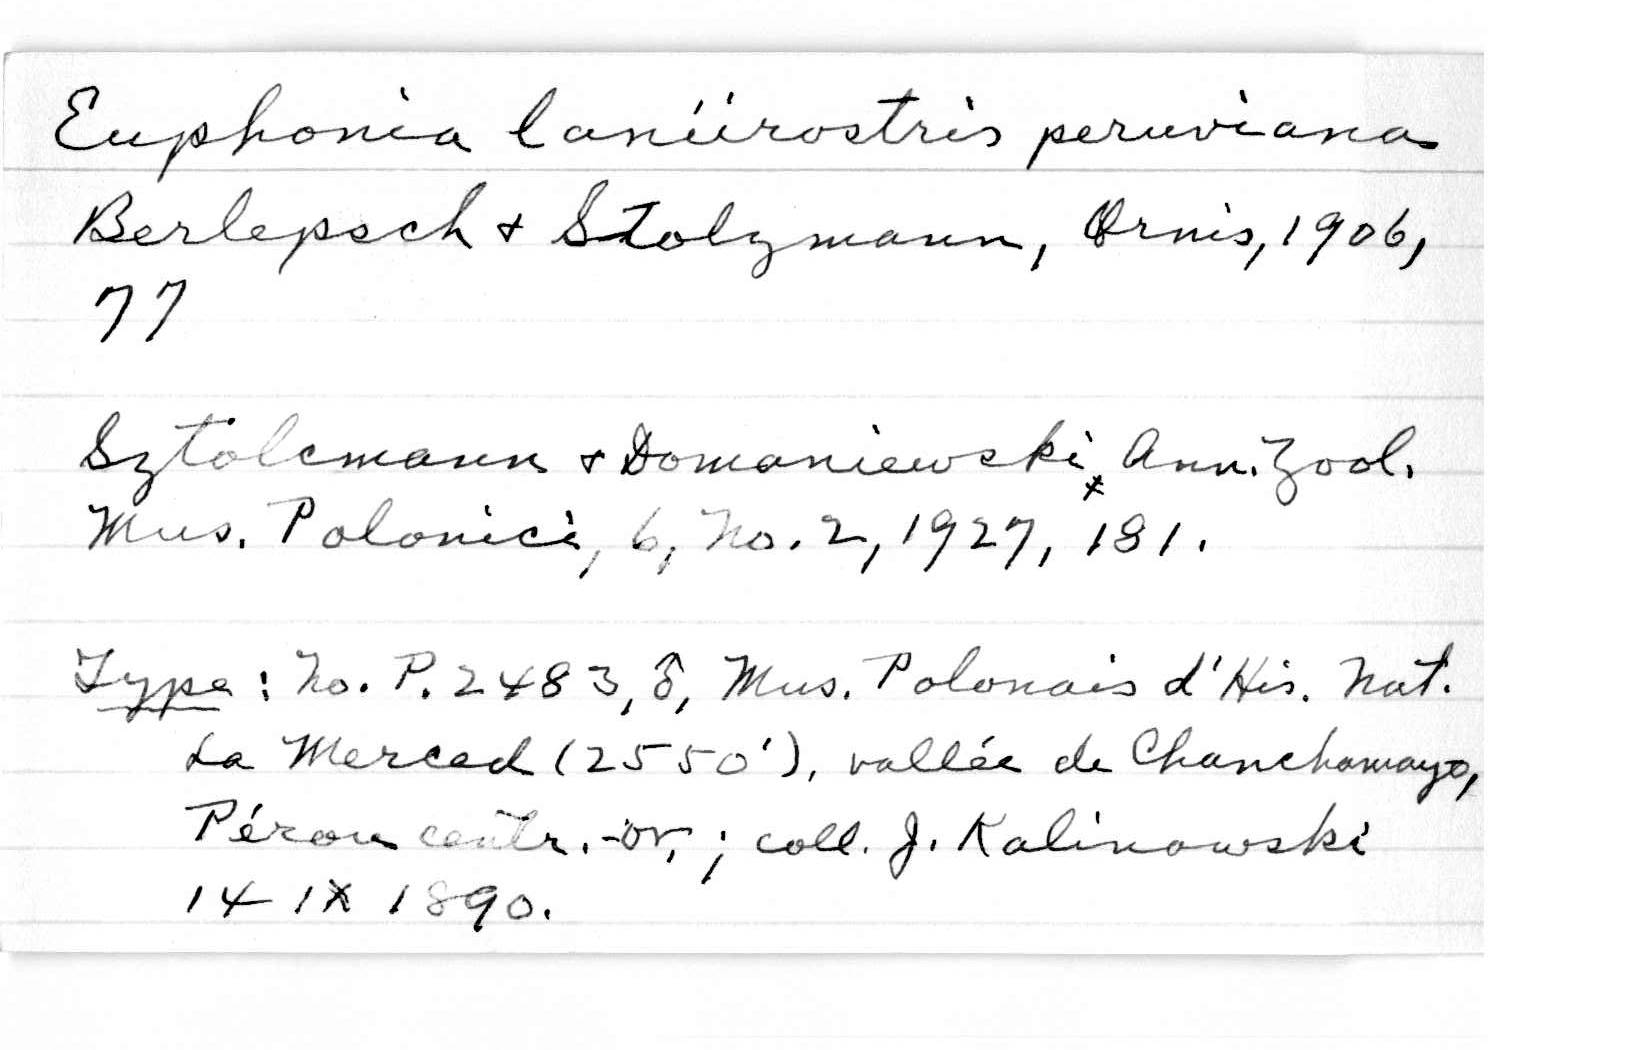 Euphonia laniirostris peruviana
Berlepsch & Stolzmann, Ornis, 1906,
77
Sztolcmann & Domaniewski, Ann. Zool.
Mus. Polonici, 6, No. 2, 1927, 181.
Type: No. P. 2483, ♂, Mus. Polonais d'His. Nat.
La Merced (2550'), vallée de Chanchamayo,
Pérou centr.-or,; coll. J. Kalinowski
14 IX 1890.